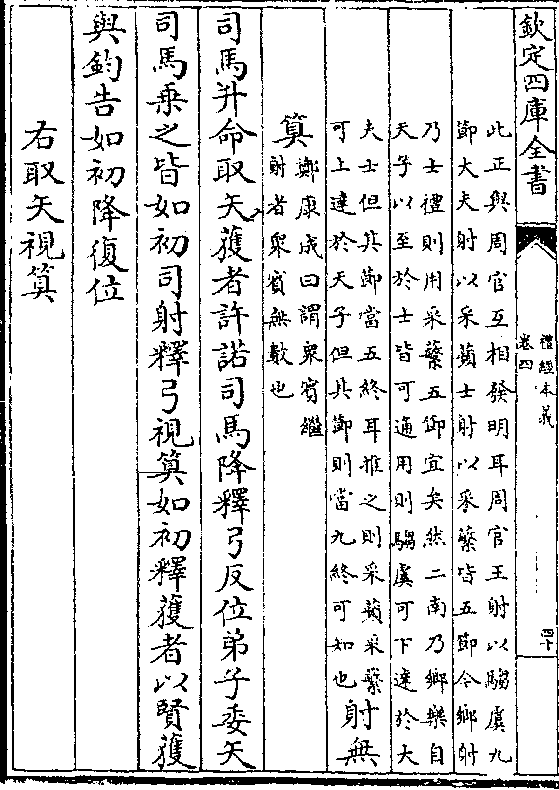 欽定四庫全書
禮經本義
卷四
四十
此正與周官互相發明耳周官王射以騶虞九
節大夫射以采蘋士射以采蘩皆五節今鄉射
乃士禮則用采蘩五節宜矣然二南乃鄉樂自
天子以至於士皆可通用則騶虞可下達於大
夫士但其節當五終耳推之則采蘋采蘩
可上達於天子但其節則當九終可知也
射無
算
鄭康成曰謂衆賓繼
射者衆賓無數也
司馬升命取矢獲者許諾司馬降釋弓反位弟子委矢
司馬乘之皆如初司射釋弓視算如初釋獲者以賢獲
與鈞告如初降復位
右取矢視算